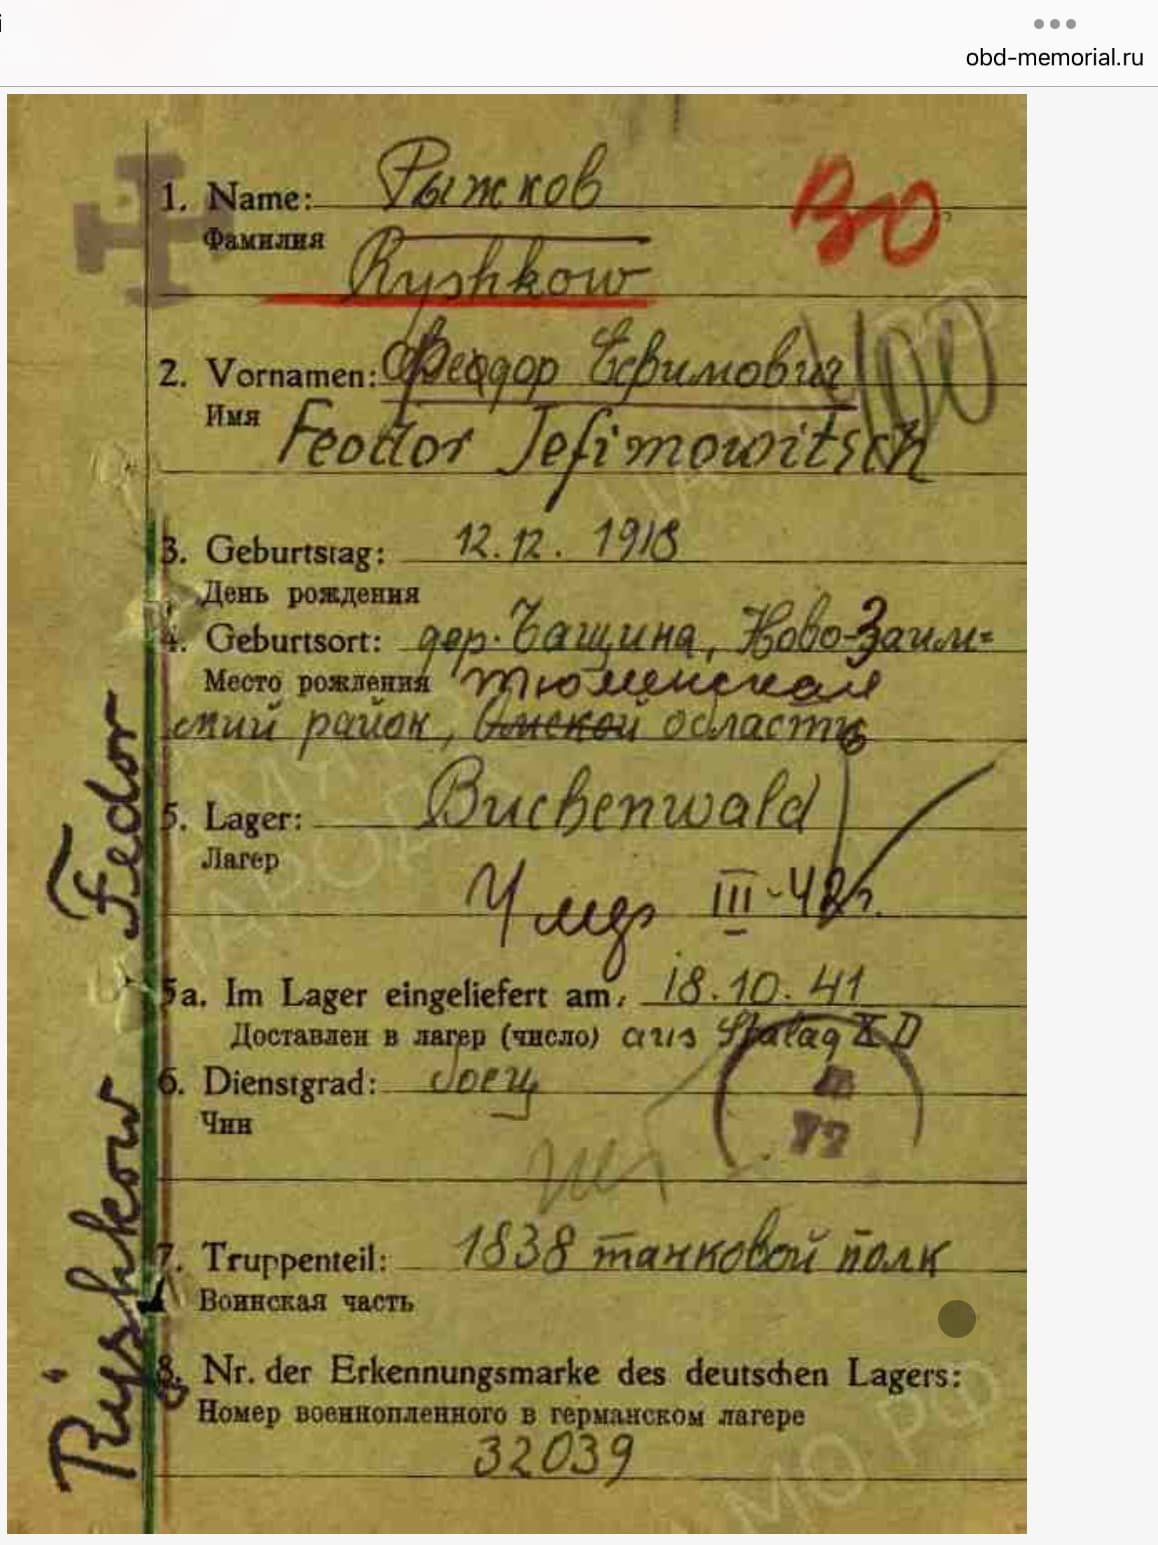 obd-memorial.ru
1. Name: Рыжков
Фамилия
Ryshkow
ВО
2. Vornamen: Феодор Ефимович
Имя
Feodor Jefimowitsch
100
3. Geburtstag: 12.12.1918
День рождения
4. Geburtsort: дер. Бащина, Ново-Заим=
Место рождения Тюменская
ский район, Омской область
5. Lager: Buchenwald
Лагерь
Умер III-42г.
5a. Im Lager eingeliefert am: 18.10.41
Доставлен в лагерь (число) aus Stalag XD
6. Dienstgrad: боец
Чин
7. Truppenteil: 1838 танковой полк
Воинская часть
8. Nr. der Erkennungsmarke des deutschen Lagers:
Номер военнопленного в германском лагере
32039
Ryshkow Fedor